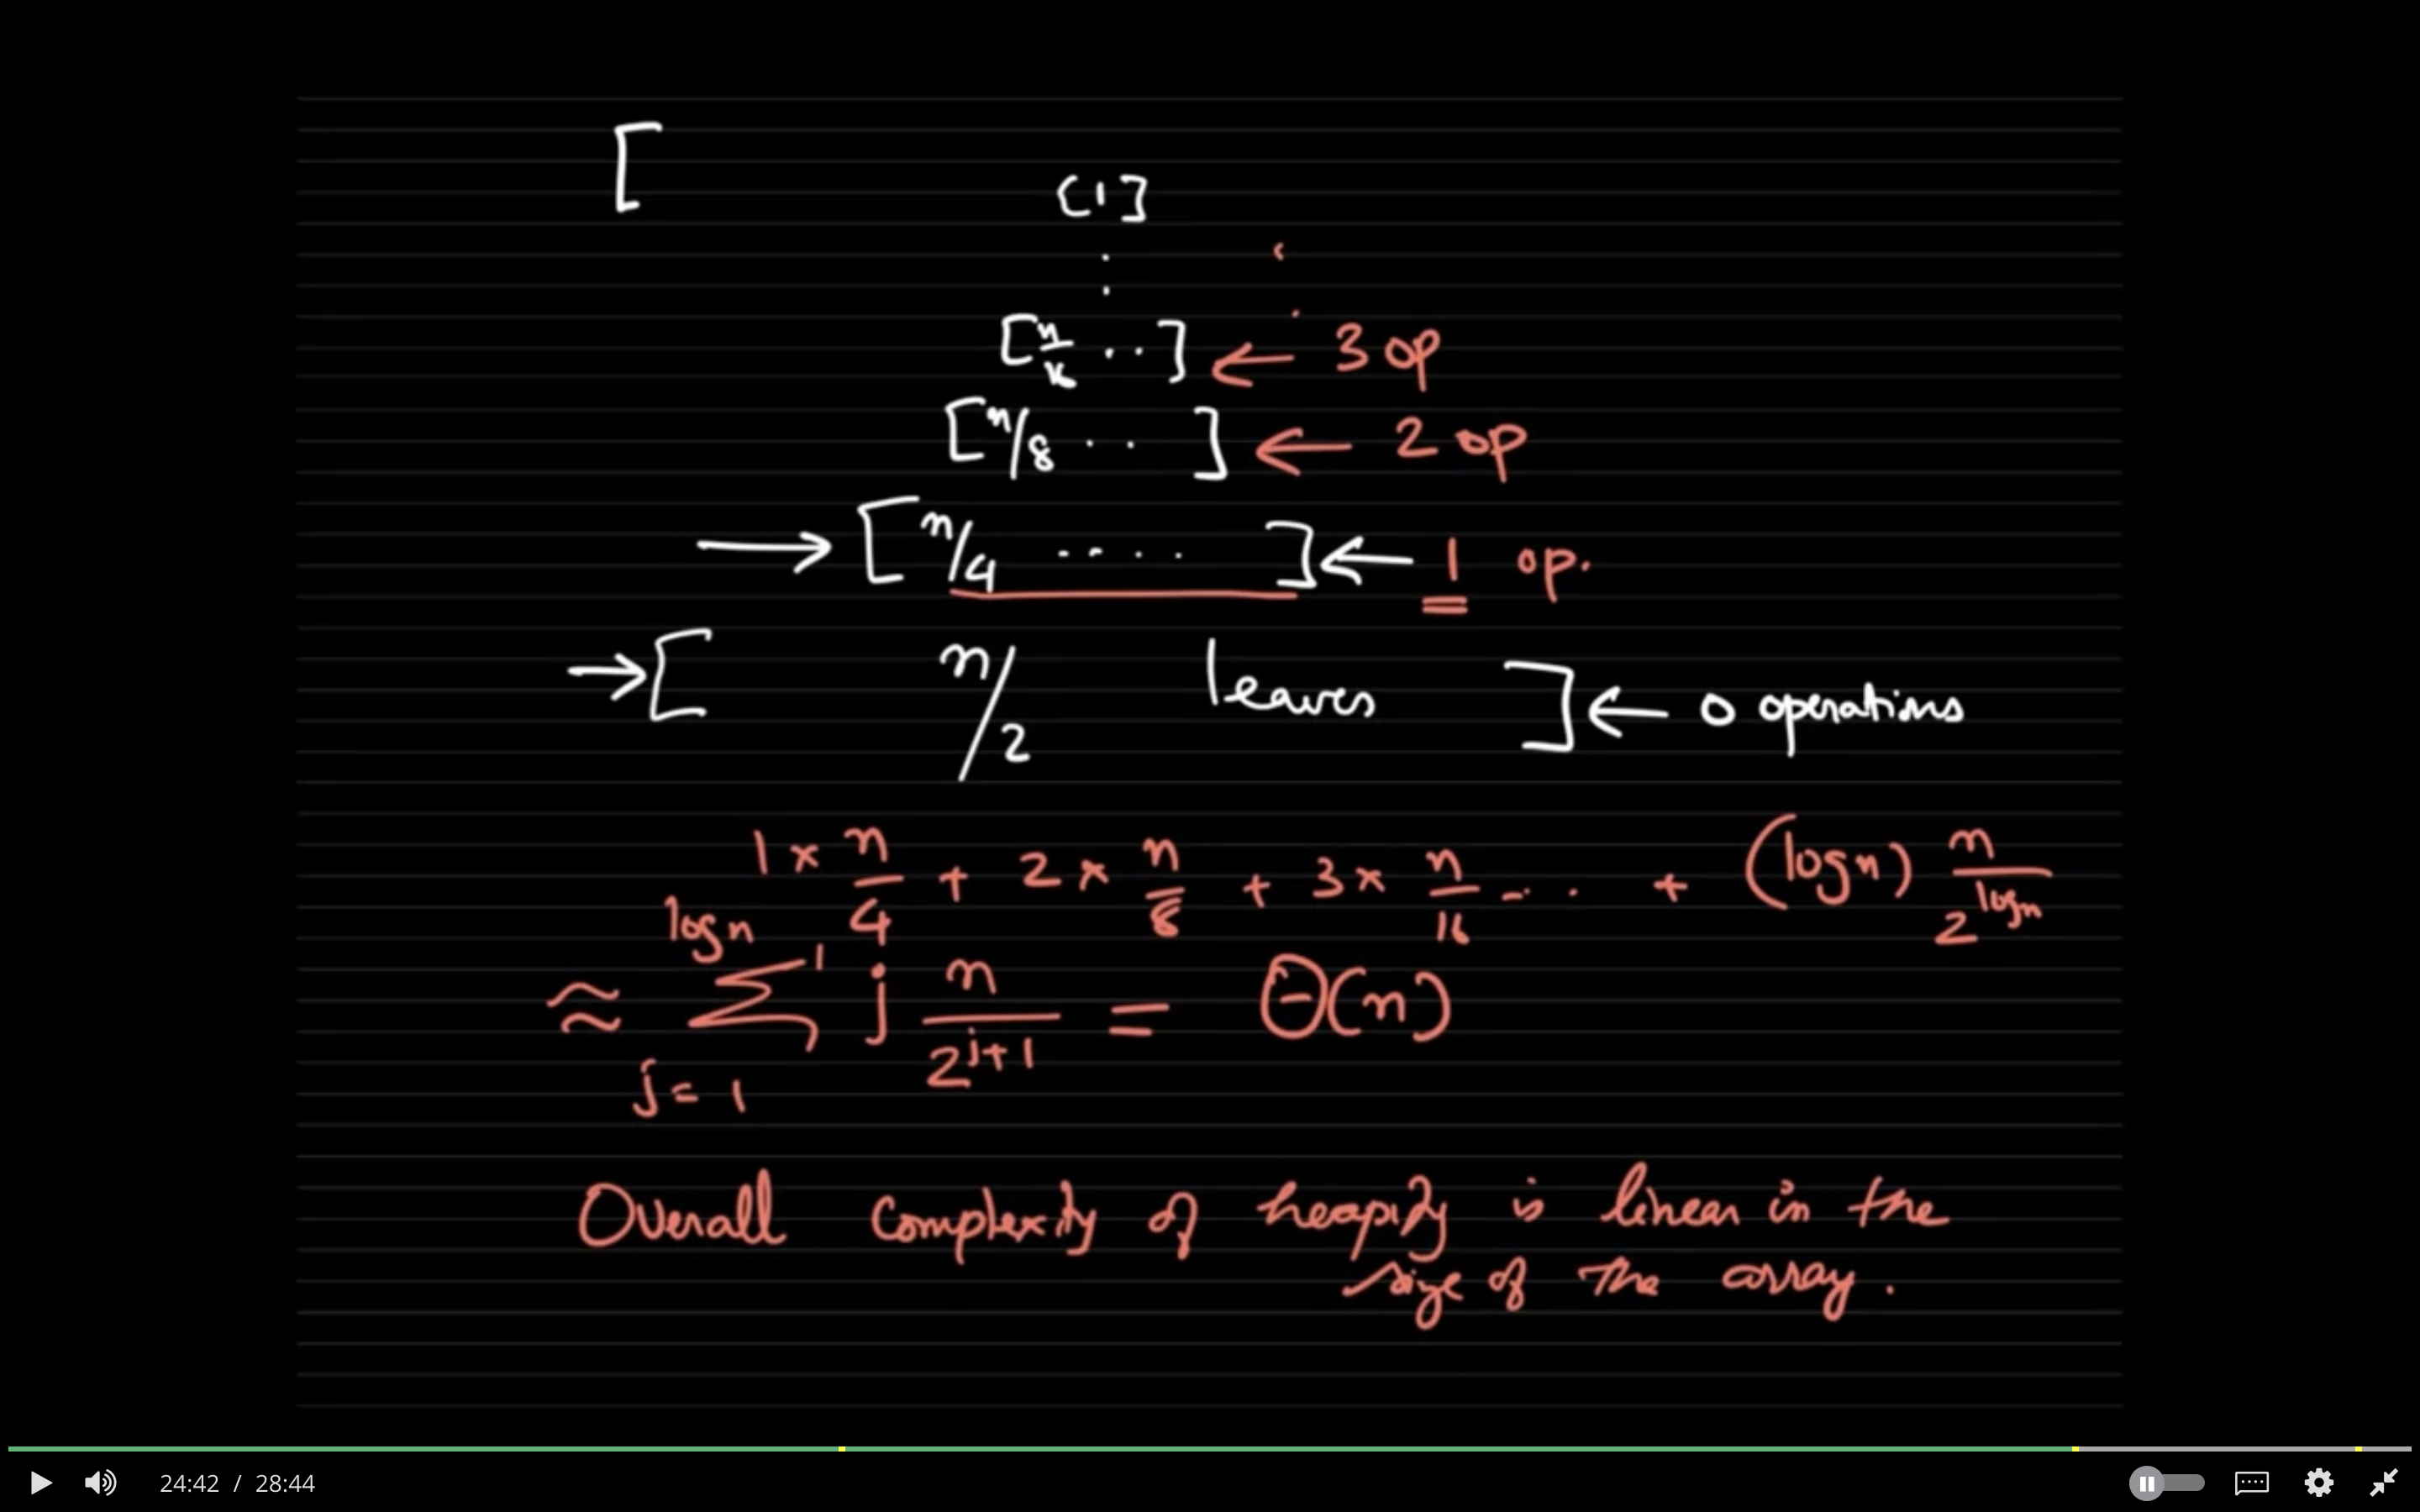 [
[1]
:
[n/16 ..] ← 3 op
[n/8 .. ] ← 2 op
→ [n/4 .... ] ← 1 op.
→ [ n/2 leaves ] ← 0 operations
1 × n/4 + 2 × n/8 + 3 × n/16 ... + (log n) n/2^log n
≈ ∑_{j=1}^{log n} j n/2^{j+1} = Θ(n)
Overall complexity of heapify is linear in the
size of the array.
24:42 / 28:44